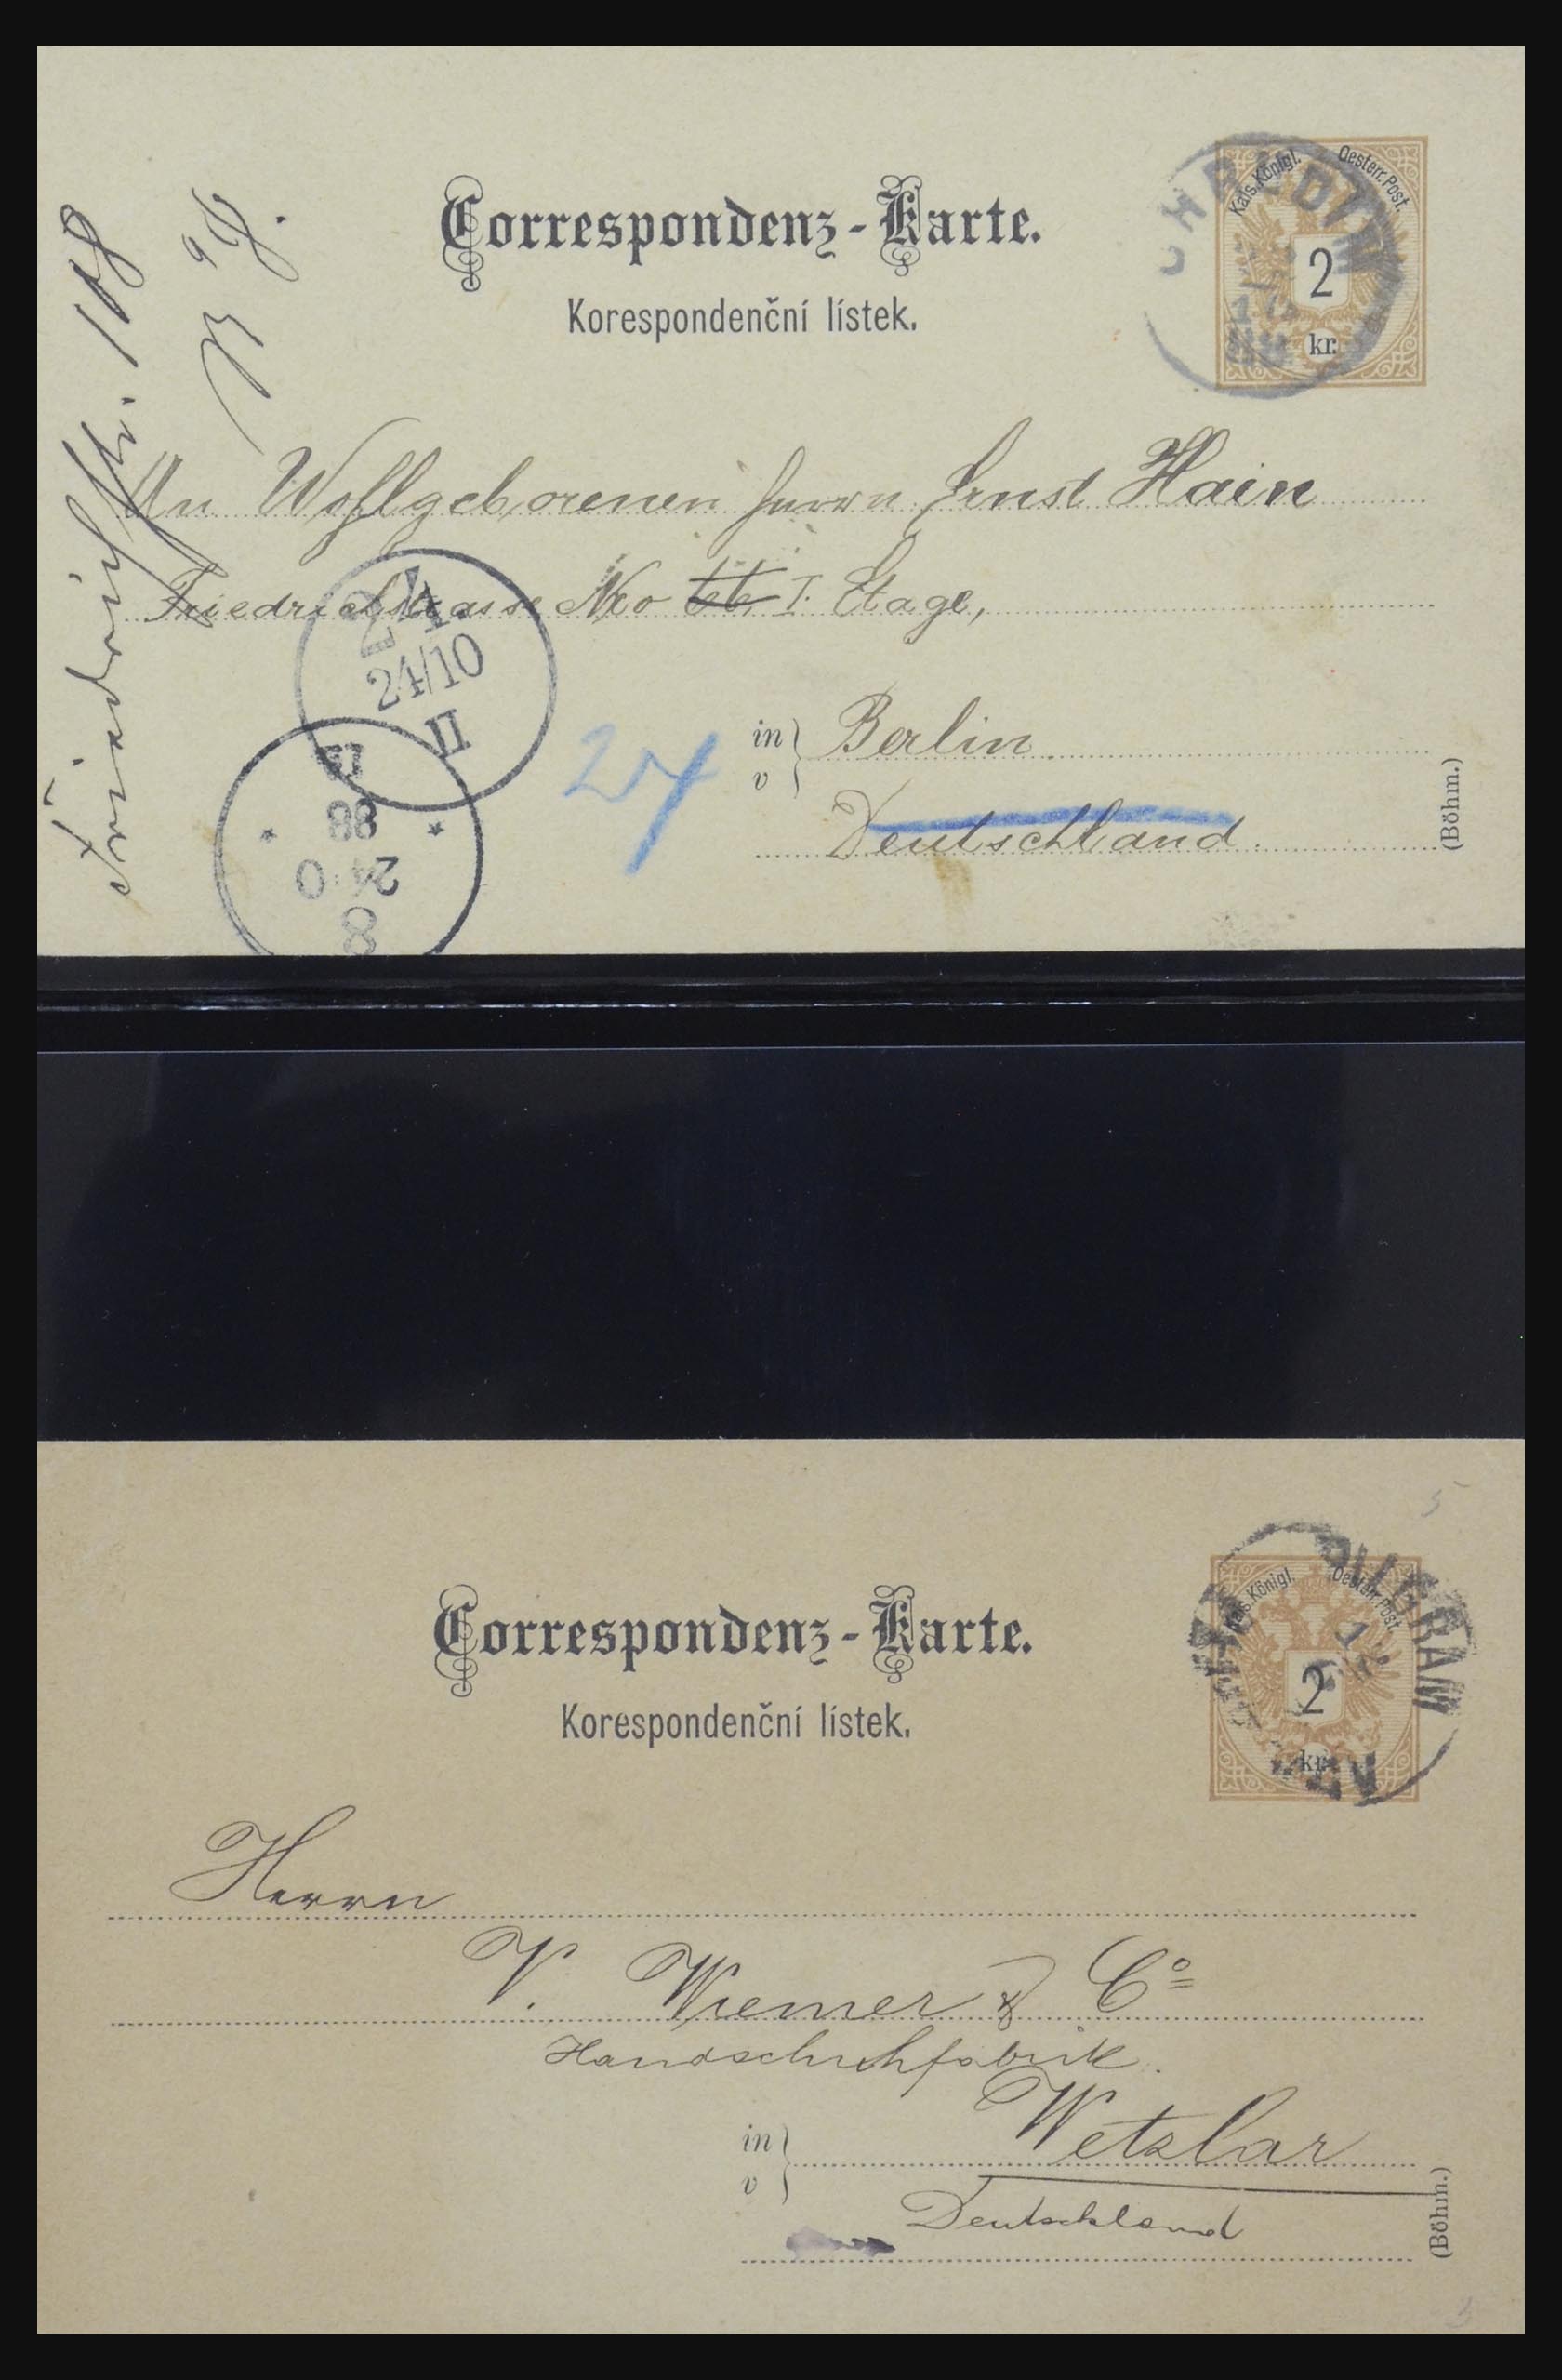 Correspondenz-Karte.
Korespondenční lístek.
Kais. Königl. Oesterr. Post.
2
kr.
CHRUDIM
An Wohlgeborenen Herrn Ernst Hain
Friedrichstrasse Nro I. Etage,
in
v
Berlin
Deutschland
(Böhm.)
24
24/10
II
88
24 0
8
24
Correspondenz-Karte.
Korespondenční lístek.
Kais. Königl. Oesterr. Post.
2
kr.
PILGRAM
Herrn
V. Wiemer & Co
Handschuhfabrik.
in
v
Wetzlar
Deutschland
(Böhm.)